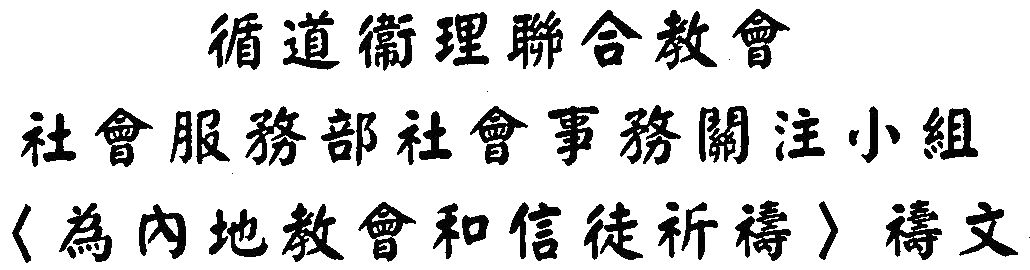 循道衞理聯合教會
社會服務部社會事務關注小組
〈為內地教會和信徒祈禱〉禱文